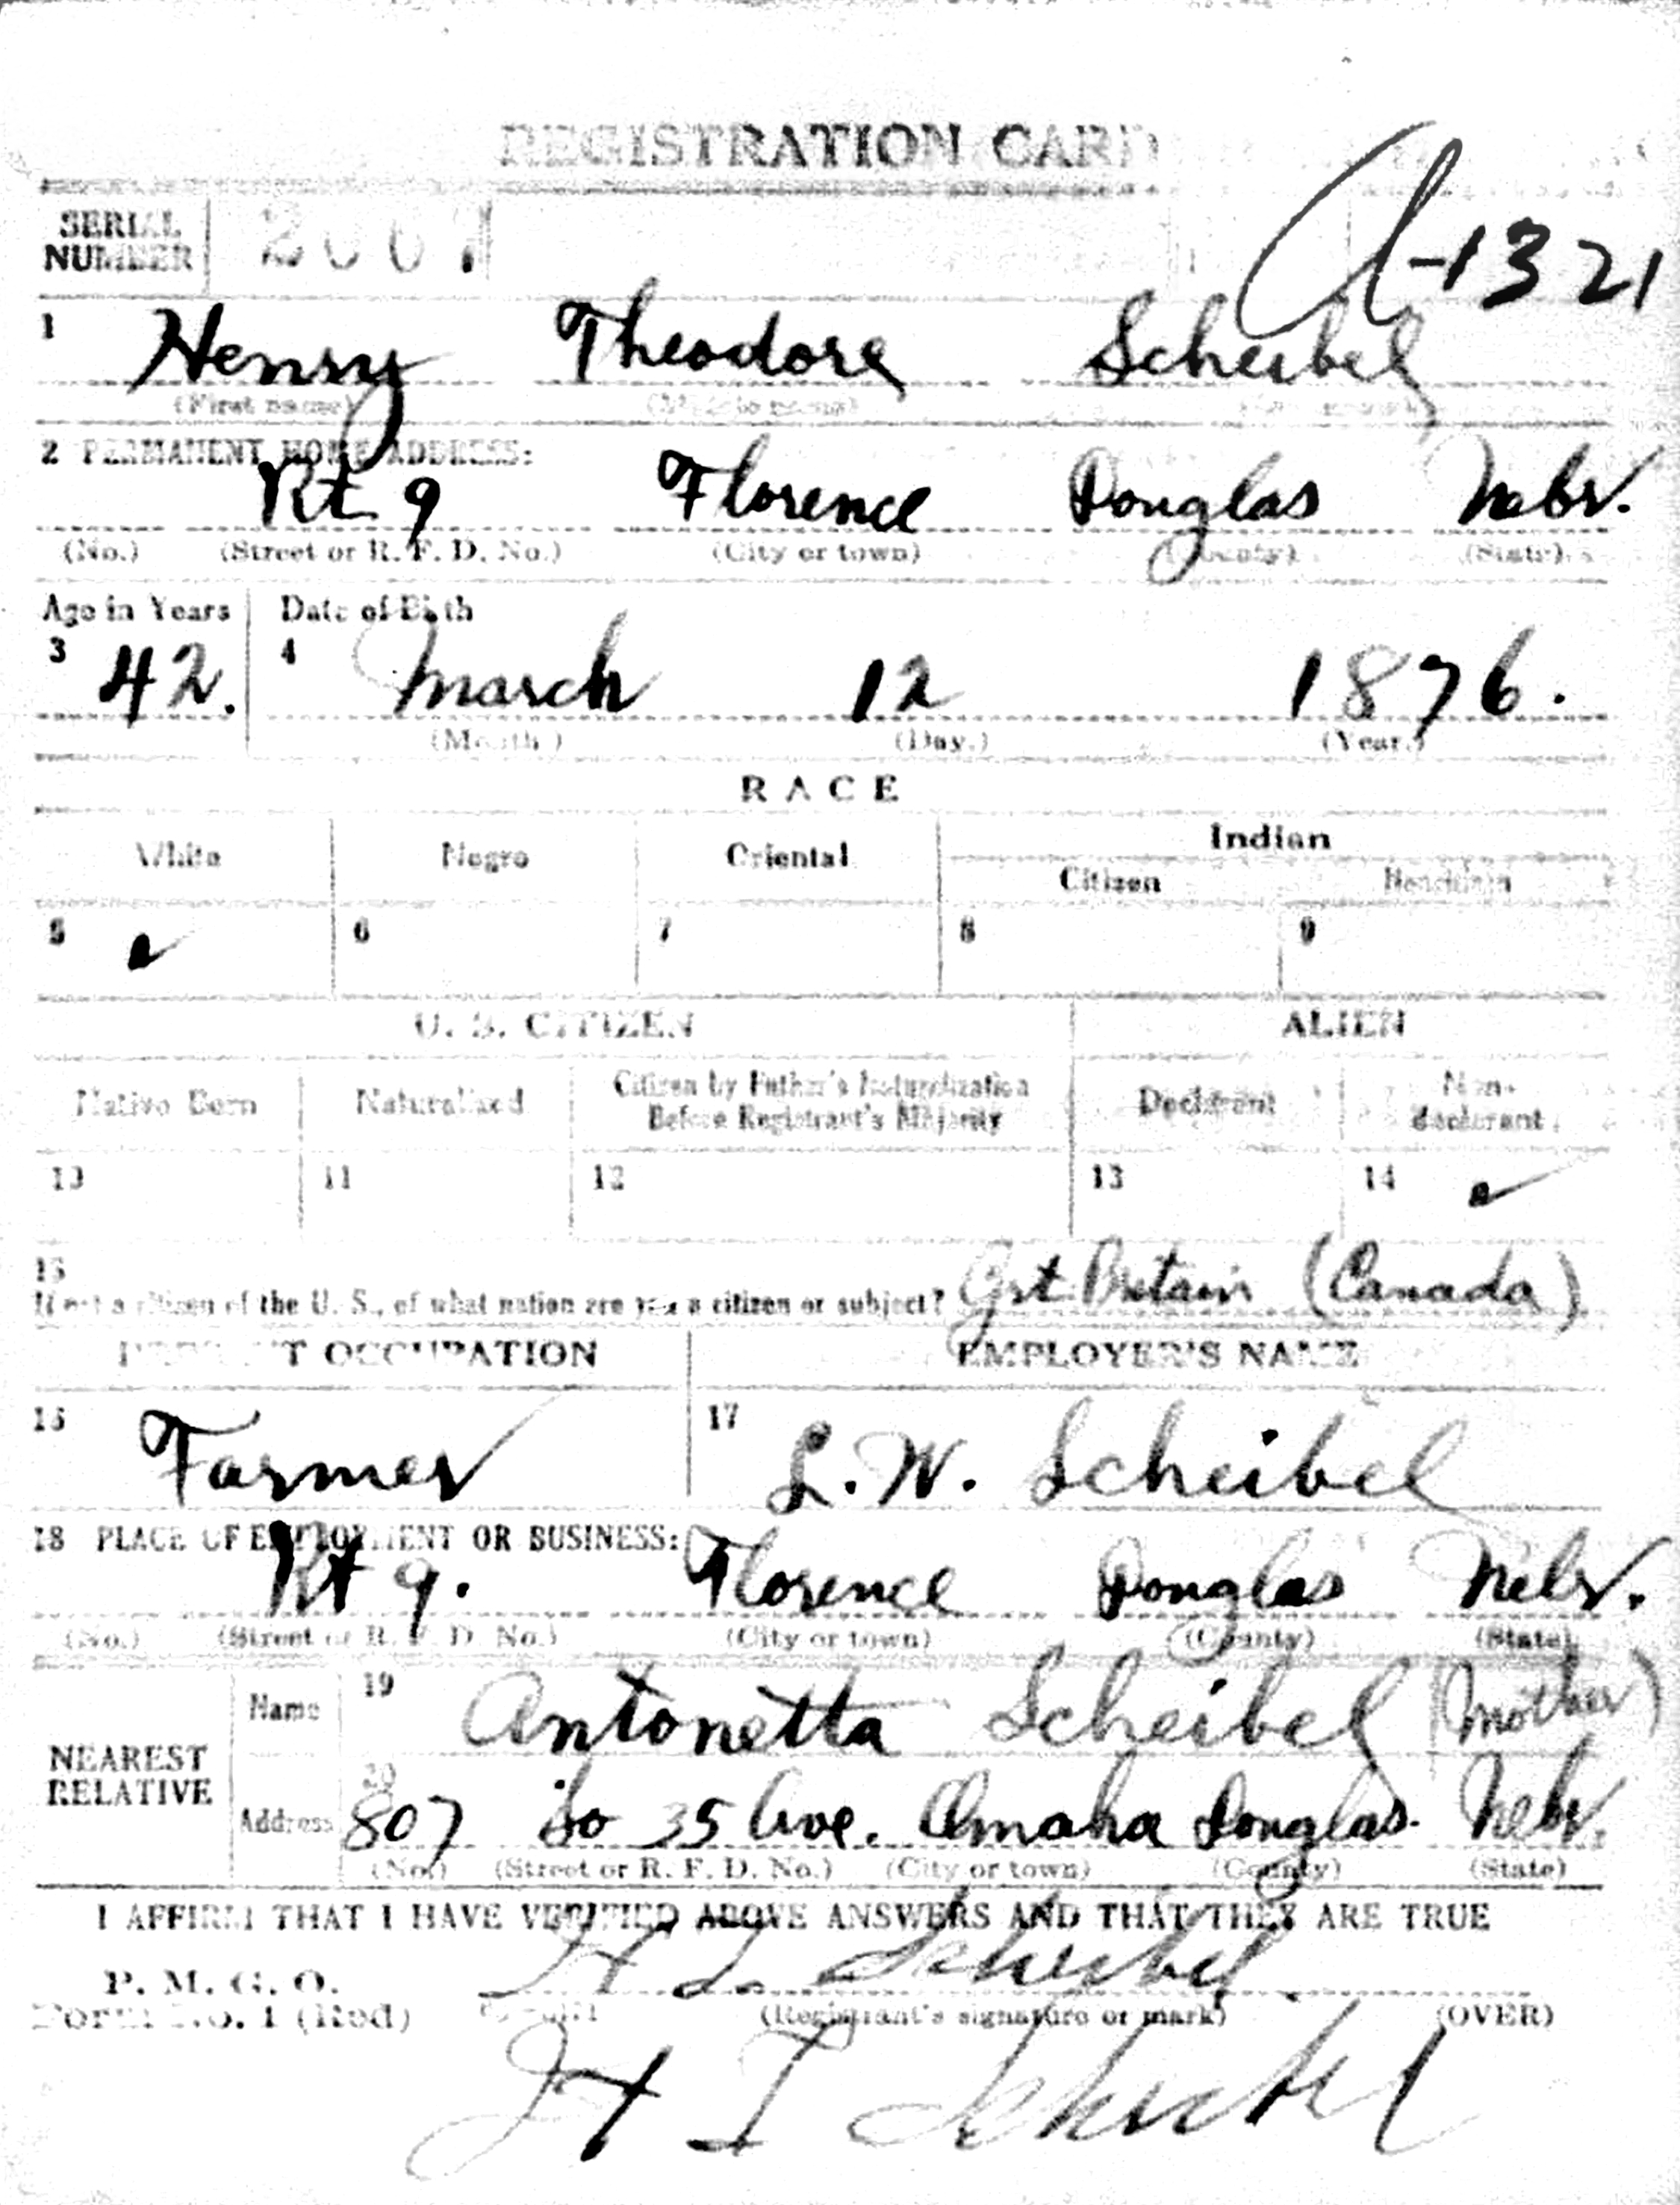 REGISTRATION CARD
SERIAL NUMBER A-1321
1 Henry Theodore Scheibel
(First name) (Middle name)
2 PERMANENT HOME ADDRESS:
Rt 9 Florence Douglas Nebr.
(No.) (Street or R. F. D. No.) (City or town) (County) (State)
Age in Years Date of Birth
3 42. 4 March 12 1876.
(Month) (Day.) (Year.)
RACE
White Negro Oriental Indian
Citizen
5 ✓ 6 7 8 9
U. S. CITIZEN ALIEN
Native Born Naturalized Citizen by Father's Naturalization Before Registrant's Majority Declarant Non-declarant
10 11 12 13 14 ✓
15
If not a citizen of the U. S., of what nation are you a citizen or subject? Grt Britain (Canada)
PRESENT OCCUPATION EMPLOYER'S NAME
16 Farmer 17 L. W. Scheibel
18 PLACE OF EMPLOYMENT OR BUSINESS:
Rt 9. Florence Douglas Nebr.
(No.) (Street or R. F. D. No.) (City or town) (County) (State)
NEAREST RELATIVE
Name 19 Antonetta Scheibel (Mother)
Address 20 807 So 35 Ave. Omaha Douglas. Nebr.
(No.) (Street or R. F. D. No.) (City or town) (County) (State)
I AFFIRM THAT I HAVE VERIFIED ABOVE ANSWERS AND THAT THEY ARE TRUE
P. M. G. O.
Form No. 1 (Red) (Registrant's signature or mark) (OVER)
H T Scheibel